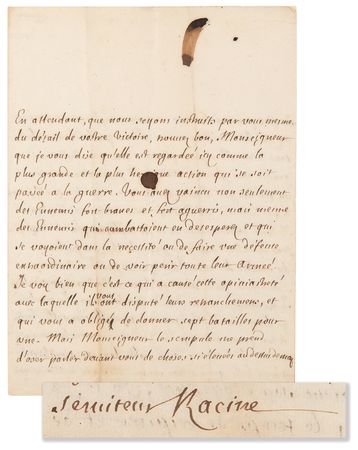 En attendant, que nous soyons instruits par vous mesme
du détail de vostre victoire, trouvez bon, Monseigneur
que je vous dise qu'elle est regardée icy comme la
plus grande et la plus heroique action qui se soit
passée a la guerre. Vous avez vaincu non seulement
des Ennemis fort braves et fort aguerris, mais mesme
des Ennemis qui combattoient en desesperez et qui
se voyoient dans la necessité ou de faire une défense
extraordinaire ou de voir perir toute leur Armée.
Je voy bien que c'est ce qui a causé cette opiniastreté
avec laquelle ils vous ont disputé leurs retranchemens, et
qui vous a obligé de donner sept batailles pour
une. Mais Monseigneur le scrupule me prend
d'oser parler devant vous de choses si élevées au dessus de moy
Serviteur Racine